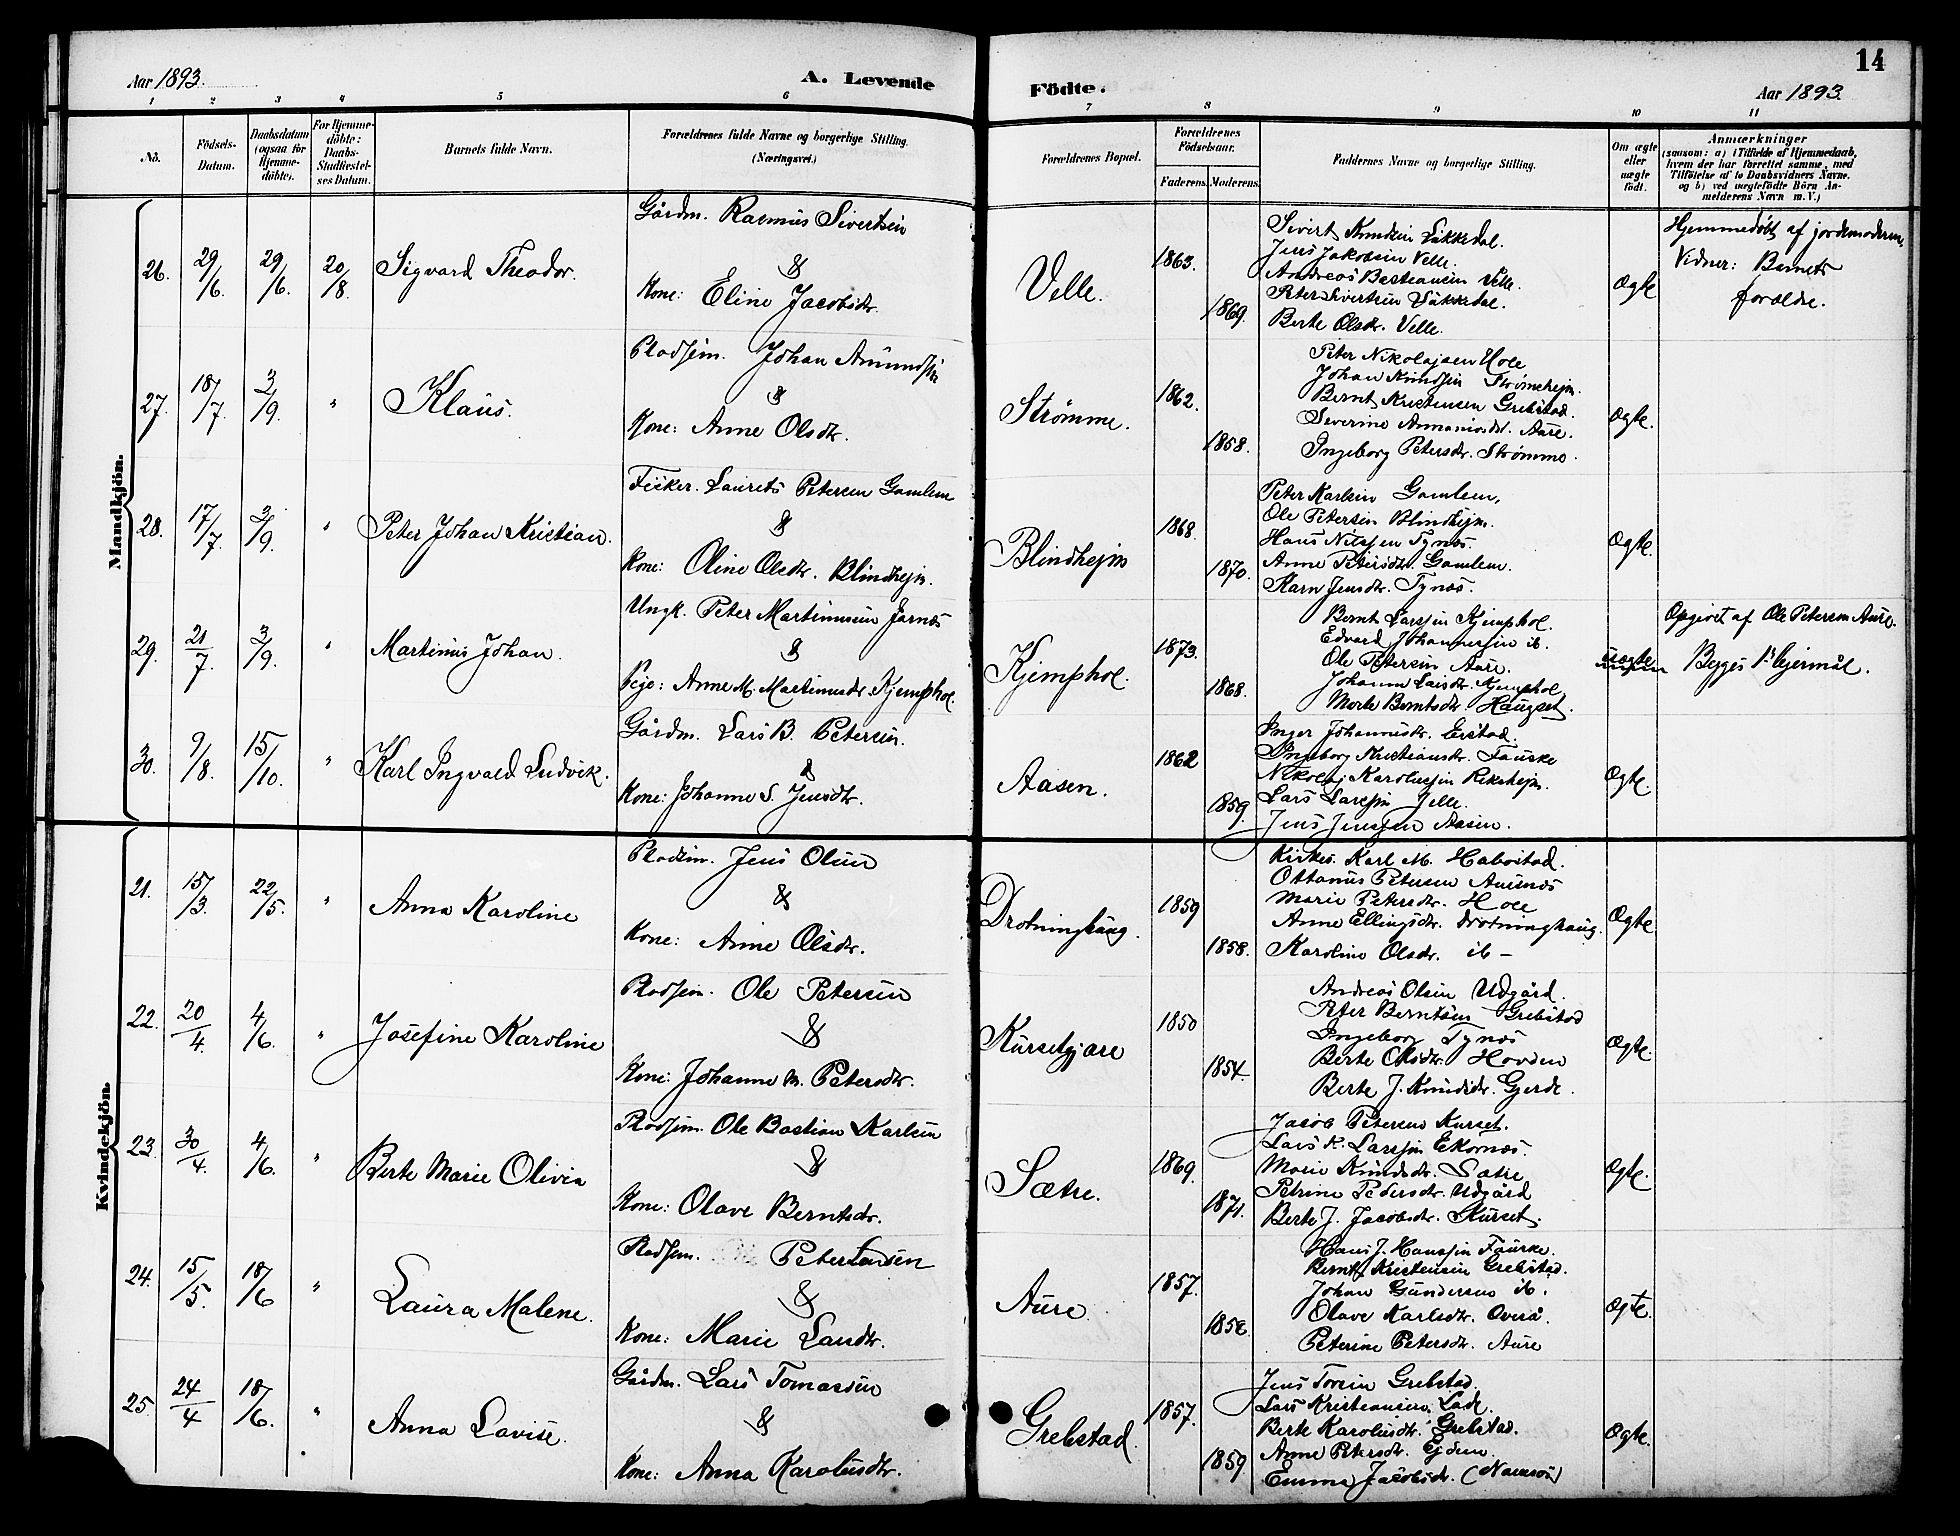 Aar 1893.
A. Levende
Födte.
Aar 1893.
14
1 2 3 4 5 6 7 8 9 10 11
No.
Födsels-Datum.
Daabsdatum (ogsaa for Hjemme-döbte).
For Hjemme-döbte: Daabs-Stadfæstel-ses Datum.
Barnets fulde Navn.
Forældrenes fulde Navne og borgerlige Stilling. (Næringsvei.)
Forældrenes Bopæl.
Forældrenes Födselsaar.
Faderens. Moderens.
Faddernes Navne og borgerlige Stilling.
Om ægte eller uægte födt.
Anmærkninger
(saasom: a) i Tilfælde af Hjemmedaab, hvem der har forrettet samme, med Tilföielse af to Daabsvidners Navne. og b) ved uægtefödte Börn An-melderens Navn m. V.)
Mandkjön.
26. 29/6. 29/6. 20/8. Sigvard Theodor.
Gårdm. Rasmus Sivertsen
&
Kone: Eline Jacobsdr.
Velle. 1863. 1869.
Sivert Knudsen Løkkedal.
Jens Jakobsen Velle.
Andreas Bastiansen Velle.
Peter Sivertsen Løkkedal.
Berte Olsdr. Velle.
Ægte
Hjemmedöbt af jordemoderen
Vidner: Barnets
forældre.
27. 18/7. 3/9. " Klaus.
Pladsem. Johan Amundsen
&
Kone: Anne Olsdr.
Strømme. 1862. 1858.
Peter Nikolajsen Hole
Johan Knudsen Strømshejm.
Bernt Kristensen Grebstad.
Severine Ananiasdt. Aure.
Ingeborg Petersdr. Strømme.
Ægte.
28. 17/7. 3/9. " Peter Johan Kristian.
Fisker. Laurits Petersen Gamlem
&
Kone: Oline Olsdr. Blindhejm.
Blindhejm 1868. 1870.
Peter Karlsen Gamlem,
Ole Petersen Blindhejm.
Hans Nilssen Tynæs.
Anne Petersdtr. Gamlem.
Karn Jensdr. Tynæs.
Ægte.
29. 21/7. 3/9. " Martinus Johan.
Ungk. Peter Martinussen Jarnæs
&
Pige: Anne M. Martinusdr Kjemphol.
Kjemphol. 1873. 1868.
Bernt Larssen Kjemphol.
Edvard Johannessen ib.
Ole Petersen Aure.
Johanne Larsdr. Kjemphol
Merte Berntsdr. Haugset.
uægte
Opgivet af Ole Petersen Aure.
Begges 1ste lejermål.
30. 9/8. 15/10. " Karl Ingvald Ludvik.
Gårdm. Lars B. Petersen.
&
Kone: Johanne S. Jensdtr.
Aasen. 1862 1859
Inger Johannesdr. Erstad.
Ingeborg Kristiansdr. Fauske
Nikolaj Karolussen Rekshejm.
Lars Larssen Velle.
Jens Jenssen Aasen.
Ægte.
Kvindekjön.
21. 15/3. 22/5. " Anna Karoline
Pladsem. Jens Olsen
&
Kone: Anne Olsdr.
Drotninghaug. 1859 1858.
Kirkes. Karl M. Habostad.
Ottanus Petersen Aursnes
Marie Petersdr. Hole
Anne Ellingsdr. Drotninghaug.
Karoline Olsdr. ib –
Ægte.
22. 20/4. 4/6. " Josefine Karoline
Pladsem. Ole Petersen
&
Kone: Johanne M. Petersdtr.
Kursetgjære 1850 1854.
Andreas Olsen Udgård.
Peter Berntsen Grebstad
Ingeborg Tynæs
Berte Olsdtr. Hovden
Berte J. Knudsdr. Gjerde.
Ægte.
23. 30/4. 4/6. " Berte Marie Olivia
Pladsem. Ole Bastian Karlsen
&
Kone: Olave Berntsdr.
Sætre. 1869. 1871.
Jacob Petersen Kurset.
Lars K. Larssen Ekornæs.
Marie Knudsdr. Sætre
Petrine Pedersdr. Udgård
Berte J. Jacobsdr. Kurset.
Ægte.
24. 15/5. 18/6 " Laura Malene.
Pladsem. Peter Larsen
&
Kone: Marie Larsdtr.
Aure. 1857. 1852.
Hans J. Hanssen Fauske.
Bernt Kristensen Grebstad.
Johan Gundersen ib.
Olave Karlsdtr. Overå.
Peterine Petersdtr. Aure
Ægte.
25. 24/4 18/6. " Anna Lovise.
Gårdm. Lars Tomassen
&
Kone: Anna Karolusdtr.
Grebstad. 1857. 1859
Jens Torsen Grebstad.
Lars Kristiansen Lade.
Berte Karolusdtr. Grebstad.
Anne Petersdtr. Ejdem.
Emma Jacobsdr.
Ægte.